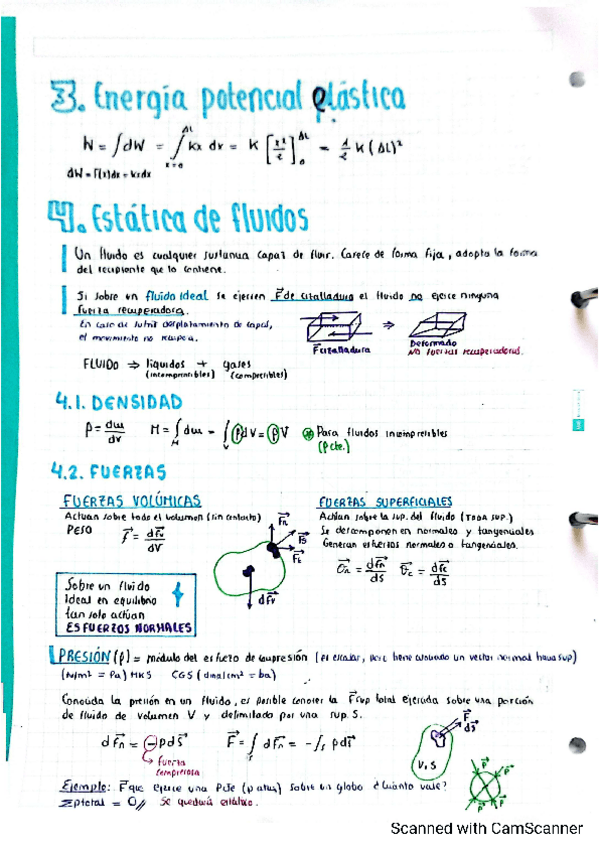 3. Energía potencial elástica
W = ∫dW = ∫ kx dx = k [x²/2] = 1/2 K (ΔL)²
ΔL
x=0
ΔL
0
dW = F(x)dx = kxdx
4. Estática de fluidos
Un fluido es cualquier sustancia capaz de fluir. Carece de forma fija, adopta la forma
del recipiente que lo contiene.
Si sobre un fluido ideal se ejercen F⃗ de cizalladura el fluido no ejerce ninguna
fuerza recuperadora.
En caso de sufrir desplazamiento de capas,
el movimiento no recupera.
F⃗cizalladura
⇒
Deformado
NO fuerzas recuperadoras.
FLUIDO ⇒ líquidos + gases
(incompresibles) (compresibles)
4.1. DENSIDAD
ρ = dm/dV M = ∫ dm = ∫ ρdV = ρV * Para fluidos incompresibles
M V
(ρ cte.)
4.2. FUERZAS
FUERZAS VOLÚMICAS
Actúan sobre todo el volumen (sin contacto)
PESO
f⃗ = dF⃗v/dV
F⃗n
F⃗s
F⃗t
dF⃗v
FUERZAS SUPERFICIALES
Actúan sobre la sup. del fluido (TODA SUP.)
Se descomponen en normales y tangenciales
Generan esfuerzos normales o tangenciales.
σ⃗n = dF⃗n/dS σ⃗t = dF⃗t/dS
Sobre un fluido
ideal en equilibrio
tan solo actúan
ESFUERZOS NORMALES
PRESIÓN (p) = módulo del esfuerzo de compresión (es escalar, pero tiene asociado un vector normal hacia sup)
(N/m² = Pa) MKS CGS (dina/cm² = ba)
Conocida la presión en un fluido, es posible conocer la F⃗sup total ejercida sobre una porción
de fluido de volumen V y delimitada por una sup. S.
dF⃗n = -pdS⃗ F⃗ = ∫ dF⃗n = -∫s pdS⃗
fuerza
compresora
F⃗
dS⃗
V, S
Ejemplo: F⃗ que ejerce una Pcte (p atm) sobre un globo ¿Cuánto vale?
Σptotal = 0 // Se quedará estático.
P⃗
P⃗
P⃗
P⃗
Scanned with CamScanner